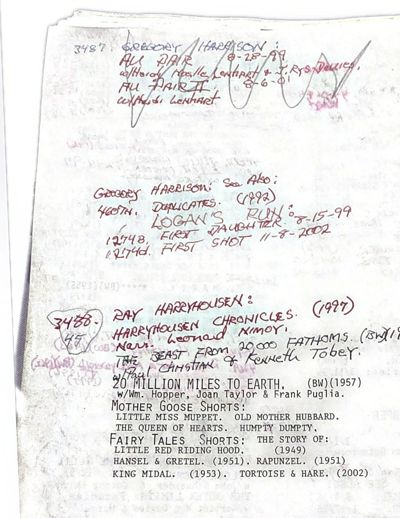 3487 GREGORY HARRISON:
AU PAIR 8-28-99
w/Heidi Noelle Lenhart & J. Rys Davies.
AU PAIR II. 8-6-01
w/Heidi Lenhart
GREGORY HARRISON: See Also:
460TH. DUPLICATES. (1992)
LOGAN'S RUN:
1274B. FIRST DAUGHTER 8-15-99
1274d. FIRST SHOT 11-8-2002
3488. RAY HARRYHOUSEN:
HARRYHOUSEN CHRONICLES. (1997)
Narr. Leonard Nimoy.
THE BEAST FROM 20,000 FATHOMS. (BW)(19
w/Paul Christian & Kenneth Tobey.
20 MILLION MILES TO EARTH. (BW)(1957)
w/Wm. Hopper, Joan Taylor & Frank Puglia.
MOTHER GOOSE SHORTS:
LITTLE MISS MUPPET. OLD MOTHER HUBBARD.
THE QUEEN OF HEARTS. HUMPTY DUMPTY.
FAIRY TALES SHORTS: THE STORY OF:
LITTLE RED RIDING HOOD. (1949)
HANSEL & GRETEL. (1951). RAPUNZEL. (1951)
KING MIDAL. (1953). TORTOISE & HARE. (2002)